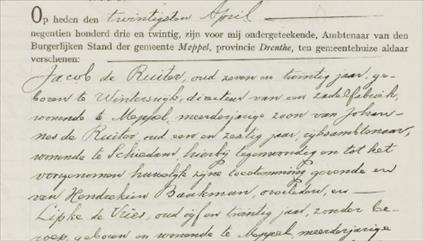 Op heden den twintigsten April
negentien honderd drie en twintig, zijn voor mij ondergeteekende, Ambtenaar van den
Burgerlijken Stand der gemeente Meppel, provincie Drenthe, ten gemeentehuize aldaar
verschenen:
Jacob de Ruiter, oud zeven en twintig jaar, ge-
boren te Winterswijk, directeur van een zadelfabriek,
wonende te Meppel, meerderjarige zoon van Johan-
nes de Ruiter, oud een en zestig jaar, rijksambtenaar,
wonende te Schiedam, hierbij tegenwoordig en tot het
voorgenomen huwelijk zijne toestemming gevende en
van Hendrekien Baakman, overleden, en
Lipke de Vries, oud vijf en twintig jaar, zonder be-
roep, geboren en wonende te Meppel meerderjarige